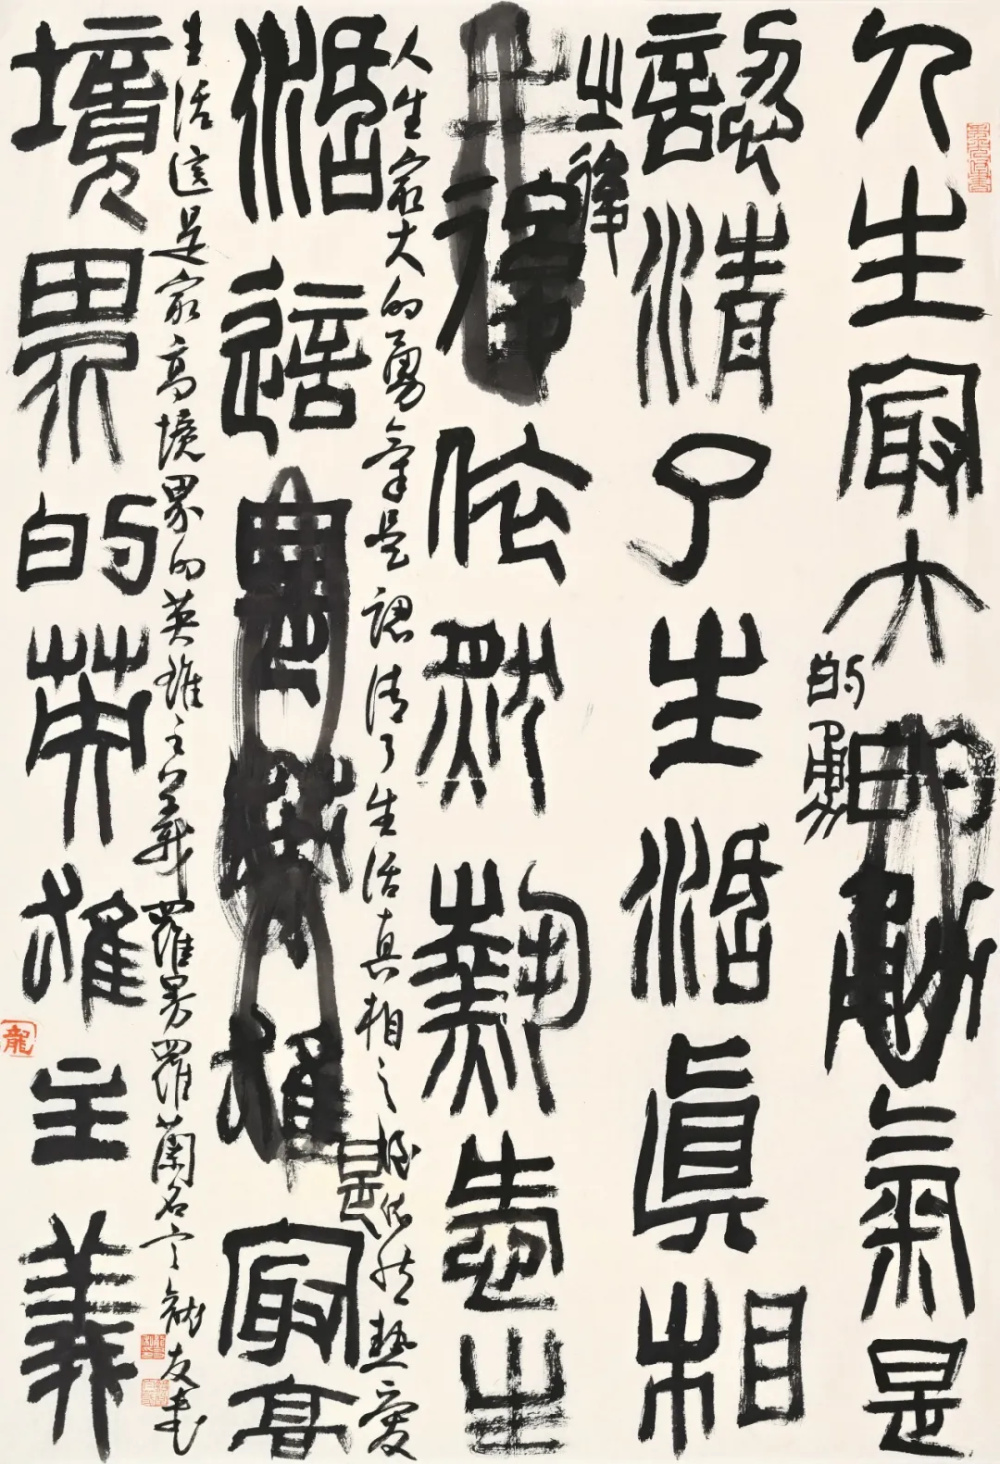 人生最大的勇氣是
認清了生活真相
之後依然熱愛生
活這是最高
境界的英雄主義
人生最大的勇氣是認清了生活真相之後依然熱愛
生活這是最高境界的英雄主義羅曼羅蘭名言
友書
龍